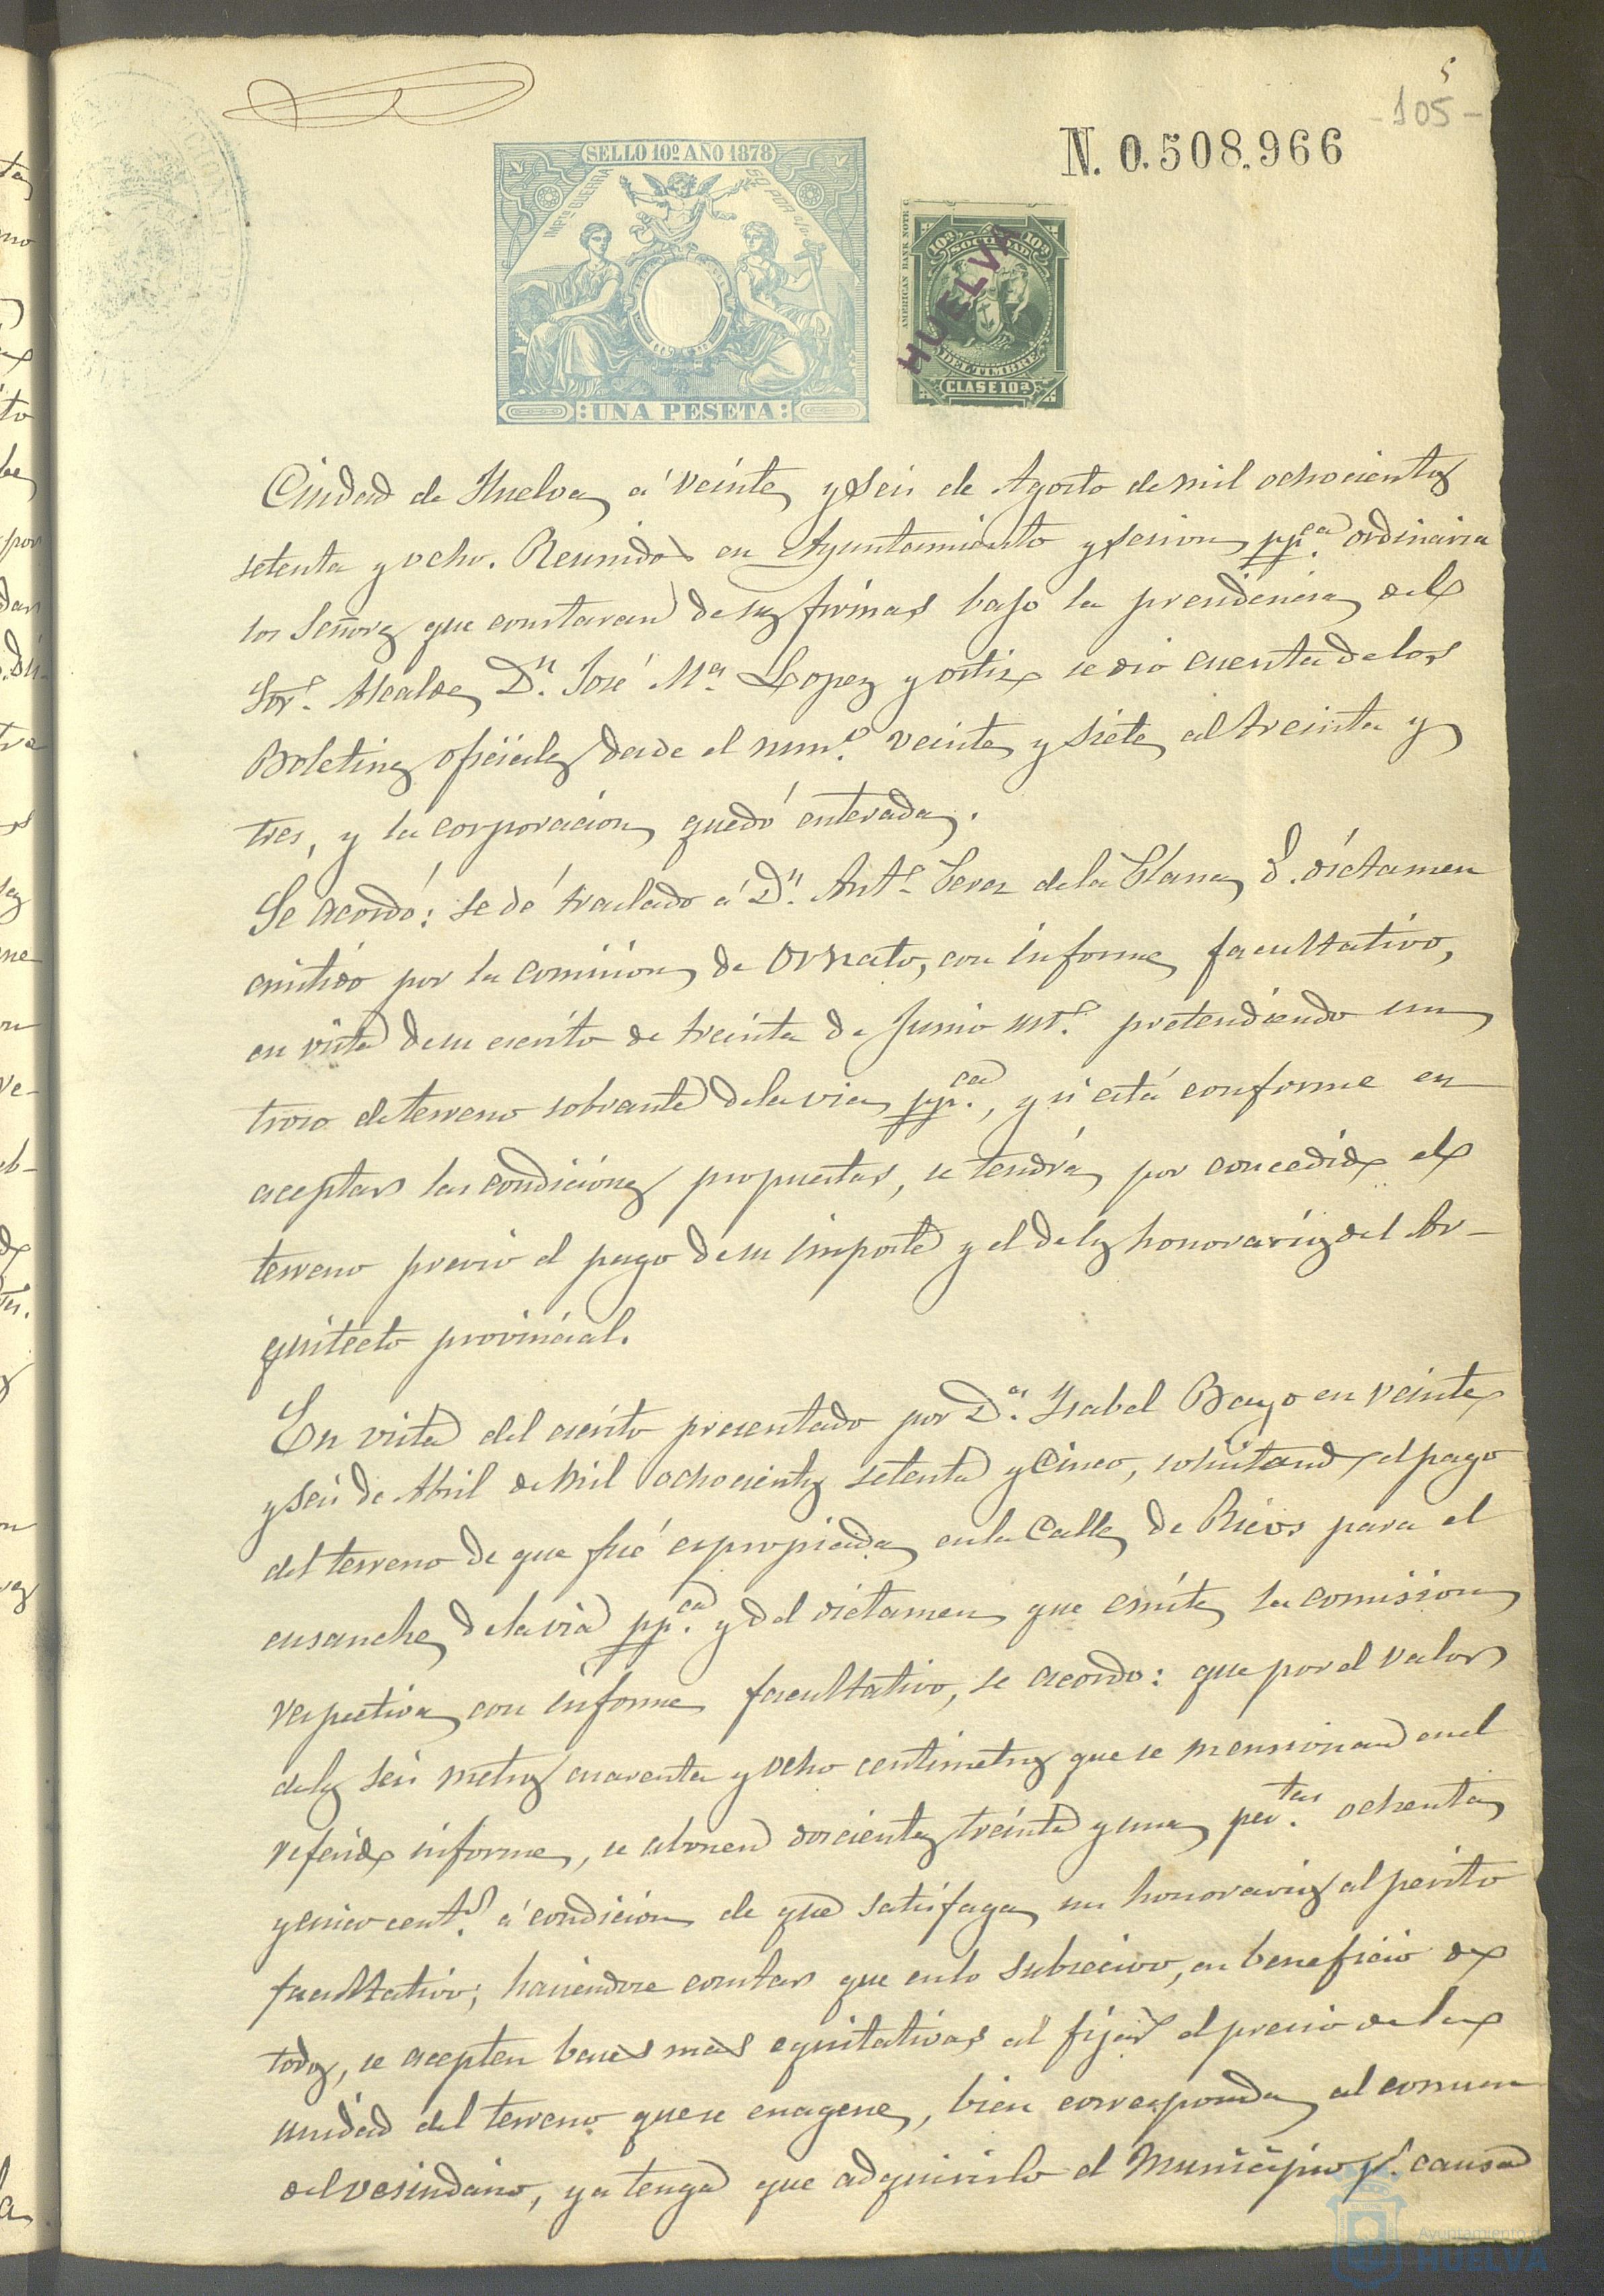 5
- 105 -
N. 0.508.966
SELLO 10º AÑO 1878
IMPTO GUERRA 50 POR 100
UNA PESETA
AMERICAN BANK NOTE C
10ª SOCIEDAD 10ª
DEL TIMBRE
CLASE 10ª
HUELVA
Ciudad de Huelva á veinte y seis de Agosto de mil ochocientos
setenta y ocho. Reunidos en Ayuntamiento y sesion ppca. ordinaria
los Señores que constaran de sus firmas bajo la presidencia del
Sor. Alcalde, Dn. José Ma. Lopez y Ortiz se dió cuenta de los
Boletines oficiales desde el numo. veinte y siete al treinta y
tres, y la corporacion quedó enterada.
Se acordó: se dé traslado á Dn. Anto. Perez de la Llana, dictamen
emitido por la comision de Ornato, con informe facultativo,
en vista de su escrito de treinta de Junio pretendiendo un
trozo de terreno sobrante de la via ppca., y si está conforme en
aceptar las condiciones propuestas, se tendrá por concedido el
terreno previo el pago de su importe y el de los honorarios del Ar-
quitecto provincial.
En vista del escrito presentado por Da. Isabel Bayo en veinte
y seis de Abril de mil ochocientos setenta y cinco, solicitando el pago
del terreno de que fué espropiada en la Calle de Ricos para el
ensanche de la via ppca. y del dictamen que emite la comision
respectiva con informe facultativo, se acordo: que por el valor
de los seis metros cuarenta y ocho centimetros que se mensionan en el
referido informe, se abonen doscientas treinta y una pestas. ochenta
y cinco cents. á condicion de que satisfaga sus honorarios al perito
facultativo; haciendose constar que en lo subcecivo, en beneficio de
todos, se acepten bases mas equitativas al fijar el precio de la
unidad del terreno que se enagene, bien corresponda al comun
del vesindario, ya tenga que adquirirlo el Municipio pr. causa
Ayuntamiento de
HUELVA